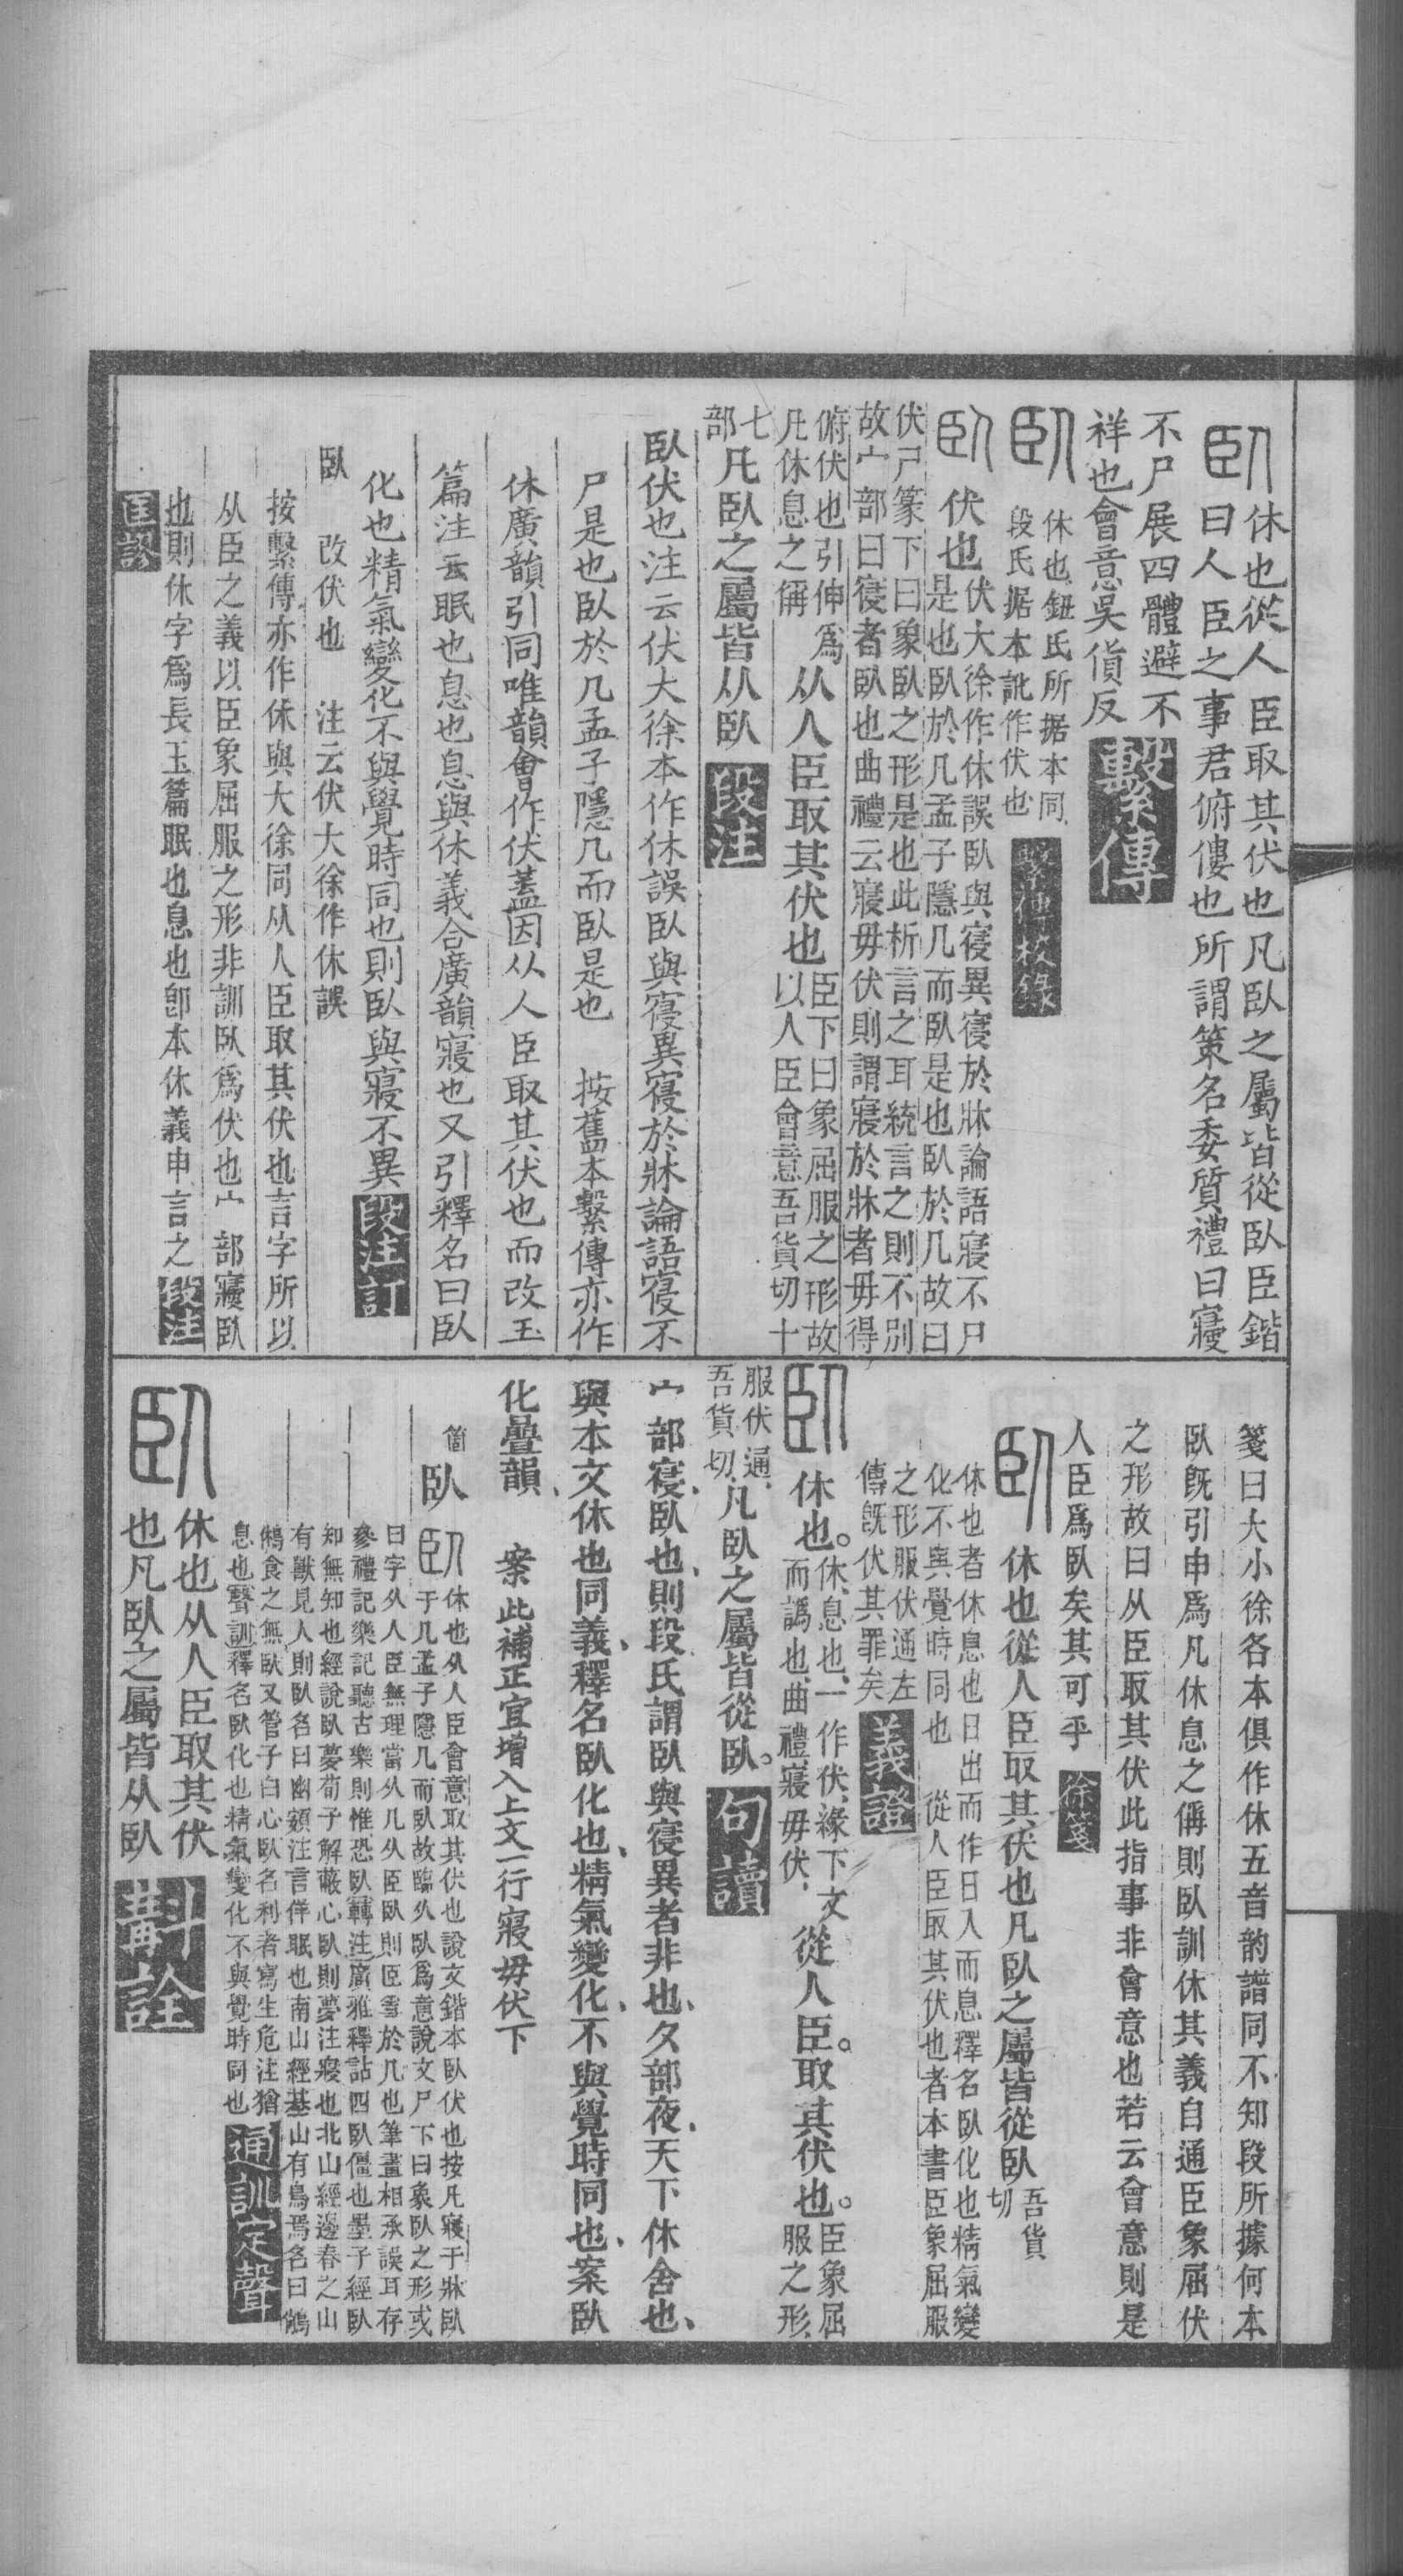 臥
休也從人臣取其伏也凡臥之屬皆從臥臣鍇
曰人臣之事君俯僂也所謂策名委質禮曰寑
不尸展四體避不
祥也會意吳貨反
繫傳
臥
休也鈕氏所据本同
段氏据本訛作伏也
繫傳校錄
臥
伏也
伏大徐作休誤臥與寑異寑於牀論語寑不尸
是也臥於几孟子隱几而臥是也臥於几故曰
伏尸篆下曰象臥之形是也此析言之耳統言之則不別
故宀部曰寑者臥也曲禮云寢毋伏則謂寢於牀者毋得
俯伏也引伸爲
凡休息之偁
从人臣取其伏也
臣下曰象屈服之形故
以人臣會意吾貨切十
七
部
凡臥之屬皆从臥
段注
臥伏也注云伏大徐本作休誤臥與寑異寑於牀論語寑不
尸是也臥於几孟子隱几而臥是也 按舊本繫傳亦作
休廣韻引同唯韻會作伏蓋因从人臣取其伏也而改玉
篇注云眠也息也息與休義合廣韻寢也又引釋名曰臥
化也精氣變化不與覺時同也則臥與寢不異
段注訂
臥 改伏也 注云伏大徐作休誤
按繫傳亦作休與大徐同从人臣取其伏也言字所以
从臣之義以臣象屈服之形非訓臥爲伏也宀部寢臥
也則休字爲長玉篇眠也息也卽本休義申言之
段注
匡謬
箋曰大小徐各本俱作休五音韵譜同不知段所據何本
臥旣引申爲凡休息之偁則臥訓休其義自通臣象屈伏
之形故曰从臣取其伏此指事非會意也若云會意則是
人臣爲臥矣其可乎
徐箋
臥
休也從人臣取其伏也凡臥之屬皆從臥
吾貨
切
休也者休息也日出而作日入而息釋名臥化也精氣變
化不與覺時同也 從人臣取其伏也者本書臣象屈服
之形服伏通左
傳旣伏其罪矣
義證
臥
休也。
休、息也、一作伏、緣下文
而譌也、曲禮、寢毋伏、
從人臣。取其伏也。
臣象屈
服之形、
服伏通、
吾貨切、
凡臥之屬皆從臥。
句讀
宀部寑、臥也、則段氏謂臥與寑異者非也、夕部夜、天下休舍也、
與本文休也同義、釋名臥化也、精氣變化、不與覺時同也、案臥
化疊韻、 案此補正宜增入上文一行寢毋伏下
箇
臥
臥
休也从人臣會意取其伏也說文鍇本臥伏也按凡寢于牀臥
于几孟子隱几而臥故臨从臥爲意說文尸下曰象臥之形或
曰字从人臣無理當从几从臣臥則臣雩於几也筆畫相承誤耳存
參禮記樂記聽古樂則惟恐臥轉注廣雅釋詁四臥僵也墨子經臥
知無知也經說臥夢荀子解蔽心臥則夢注寢也北山經邊春之山
有獸見人則臥名曰幽頞注言佯眠也南山經基山有鳥焉名曰鵂
鵂食之無臥又管子白心臥名利者寫生危注猶
息也聲訓釋名臥化也精氣變化不與覺時同也
通訓定聲
臥
休也从人臣取其伏
也凡臥之屬皆从臥
斠詮